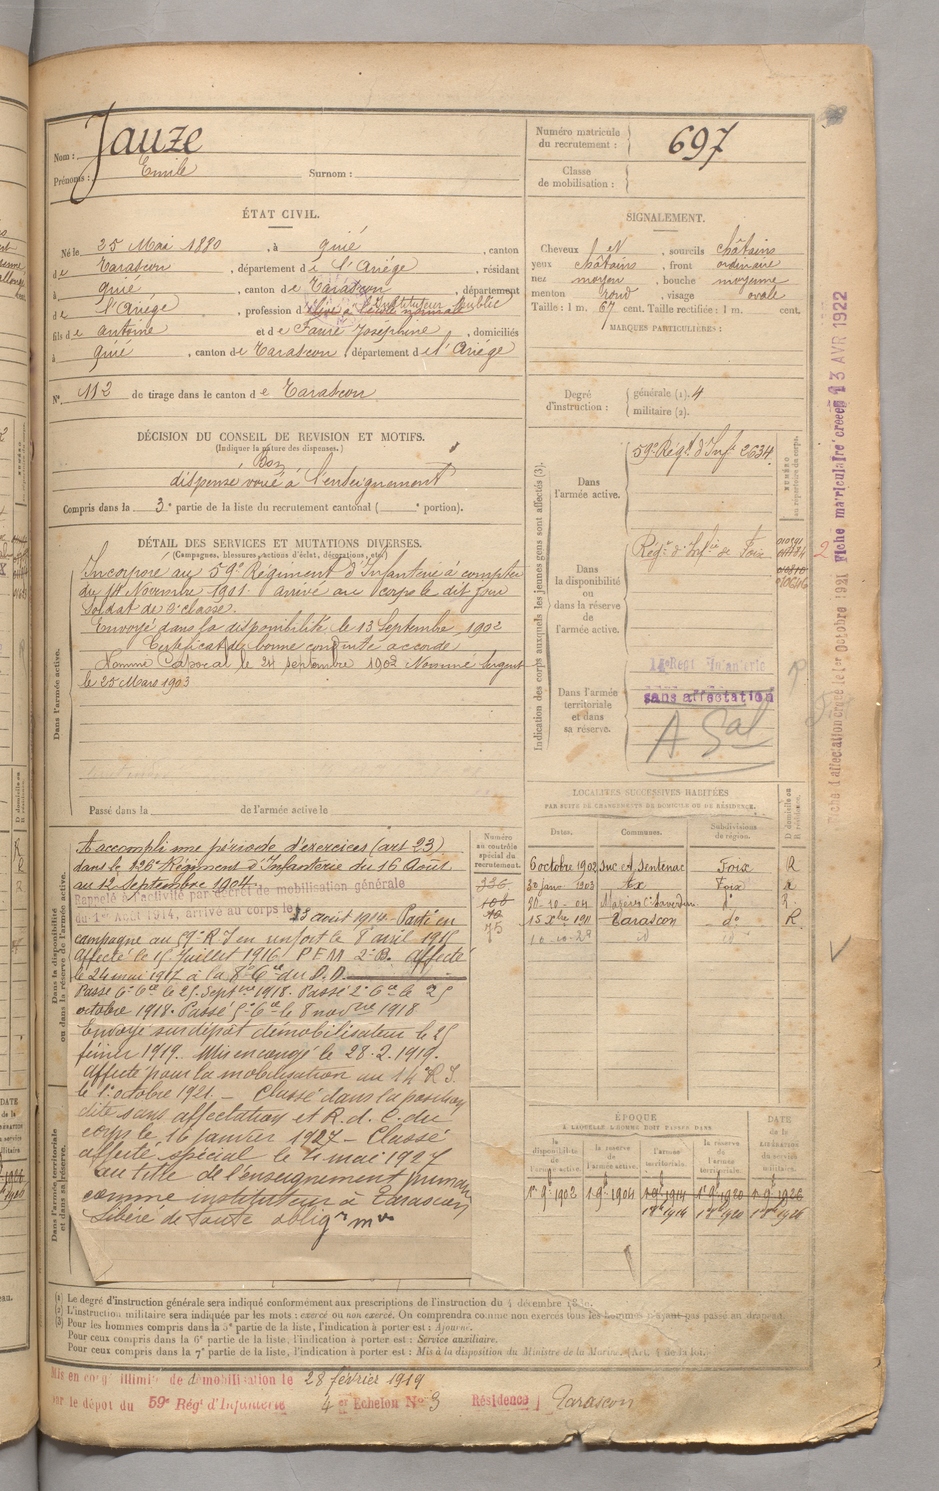 Nom : Jauze
Prénoms : Emile Surnom :
Numéro matricule du recrutement : 697
Classe de mobilisation :
ÉTAT CIVIL.
Né le 25 Mai 1880, à Quié, canton
de Tarascon, département de l'Ariége, résidant
à Quié, canton de Tarascon, département
de l'Ariége, profession d'Elève à l'école normale Instituteur Public
fils de Antoine et de Faure Josephine, domiciliés
à Quié, canton de Tarascon, département de l'Ariége
N° 112 de tirage dans le canton de Tarascon
SIGNALEMENT.
Cheveux , sourcils châtains
yeux châtains, front ordinaire
nez moyen, bouche moyenne
menton rond, visage ovale
Taille : 1 m. 67 cent. Taille rectifiée : 1 m. cent.
MARQUES PARTICULIÈRES :
Degré d'instruction : générale (1). 4
militaire (2).
DÉCISION DU CONSEIL DE REVISION ET MOTIFS.
(Indiquer la nature des dispenses.)
Bon
dispensé voué à l'enseignement
Compris dans la 3e partie de la liste du recrutement cantonal ( e portion).
DÉTAIL DES SERVICES ET MUTATIONS DIVERSES.
(Campagnes, blessures, actions d'éclat, décorations, etc.)
Dans l'armée active.
Incorporé au 59e Régiment d'Infanterie à compter
du 14 Novembre 1901 arrivé au corps le dit jour
Soldat de 2e classe.
Envoyé dans la disponibilité le 13 Septembre 1902
Certificat de bonne conduite accordé
Nommé Caporal le 24 septembre 1902 Nommé Sergent
le 25 Mars 1903
Passé dans la de l'armée active le
Indication des corps auxquels les jeunes gens sont affectés (3).
NUMÉRO au répertoire du corps.
Dans l'armée active.
59e Régt d'Inf. 2634.
Dans la disponibilité ou dans la réserve de l'armée active.
Régt d'Infie de Foix
Dans l'armée territoriale et dans sa réserve.
14e Régt Infanterie
sans affectation
Fiche d'affectation créée le 1er Octobre 1921 Fiche matriculaire créée 13 AVR 1922
LOCALITÉS SUCCESSIVES HABITÉES
PAR SUITE DE CHANGEMENTS DE DOMICILE OU DE RÉSIDENCE.
Dates. Communes. Subdivisions de région. D domicile ou R résidence.
6 octobre 1902 Suc et Sentenac Foix R
30 janv 1903 Ax Foix R
20-10-04 Mazères d° R.
15 Xbre 1911 Tarascon d° R.
10-10-22 id id
Dans la disponibilité ou dans la réserve de l'armée active.
Numéro au contrôle spécial du recrutement.
75
A accompli une période d'exercices (art 23)
dans le 126e Régiment d'Infanterie du 16 Août
au 12 Septembre 1904.
Rappelé à l'activité par décret de mobilisation générale
du 1er Août 1914, arrivé au corps le 13 août 1914 Parti en
campagne au 59e R.I en renfort le 8 avril 1915
Affecté le 15 Juillet 1916 PEM 2e B. affecté
le 24 mai 1917 à la 8e Cie du D.D.
Passé 6e Cie le 25 Septbre 1918. Passé 2e Cie le 25
octobre 1918. Passé 5e Cie le 8 novbre 1918
Envoyé sur dépôt démobilisateur le 25
février 1919. Mis en congé le 28.2.1919.
Affecté pour la mobilisation au 14e R.I.
le 1er octobre 1921. — Classé dans la position
dite sans affectation et R.d.C. du
corps le 16 janvier 1927 — Classé
affecté spécial le 4 mai 1927
au titre de l'enseignement primaire
comme instituteur à Tarascon
Libéré de toute obligon mre
Dans l'armée territoriale et dans sa réserve.
ÉPOQUE
À LAQUELLE L'HOMME DOIT PASSER DANS
la disponibilité de l'armée active. la réserve de l'armée active. l'armée territoriale. la réserve de l'armée territoriale. DATE de la LIBÉRATION du service militaire.
1er 9bre 1902 1er 9bre 1904 1er 9bre 1914 1er 9bre 1920 1er 9bre 1926
(1) Le degré d'instruction générale sera indiqué conformément aux prescriptions de l'instruction du 4 décembre 1889.
(2) L'instruction militaire sera indiquée par les mots : exercé ou non exercé. On comprendra comme non exercés tous les hommes n'ayant pas passé au drapeau.
(3) Pour les hommes compris dans la 5e partie de la liste, l'indication à porter est : Ajourné.
Pour ceux compris dans la 6e partie de la liste, l'indication à porter est : Service auxiliaire.
Pour ceux compris dans la 7e partie de la liste, l'indication à porter est : Mis à la disposition du Ministre de la Marine. (Art. 4 de la loi.)
Mis en congé illimité de démobilisation le 28 février 1919
sur le dépôt du 59e Régt d'Infanterie 4er Echelon No 3 Résidence Tarascon